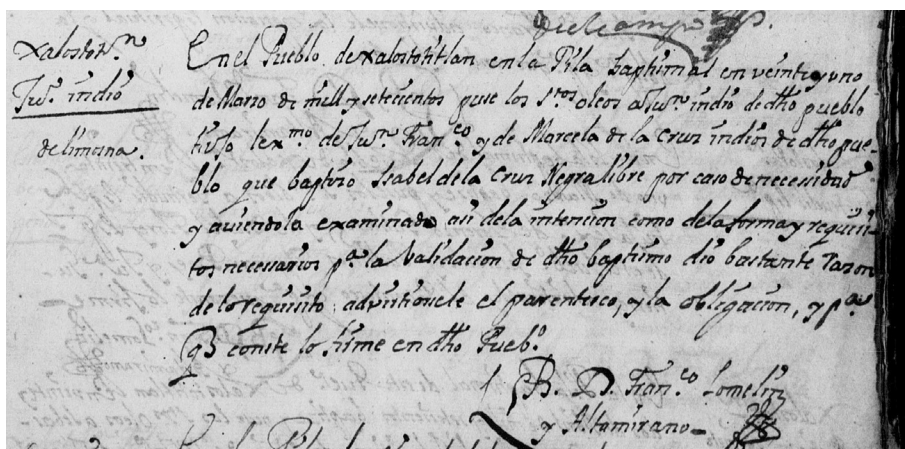 Xalostotn
Jun. indio
delimina.
En el Pueblo de xalostotitlan en la Pila baptismal en veinte y uno
de Marzo de mill y setecientos puse los stos oleos a Jun indio de dho pueblo
hijo lexmo de Jun Franco y de Marcela de la Cruz indios de dho pue-
blo que baptizo Isabel de la Cruz Negra libre por caso de necesidad
y aviendola examinado asi de la intencion como de la forma y requisi-
tos necessarios pa la Validacion de dho baptismo dio bastante razon
de lo requisito advirtiosele el parentesco, y la obligacion, y pa
q conste lo firme en dho Puebo
B. D. Franco Lomelin
y Altamirano